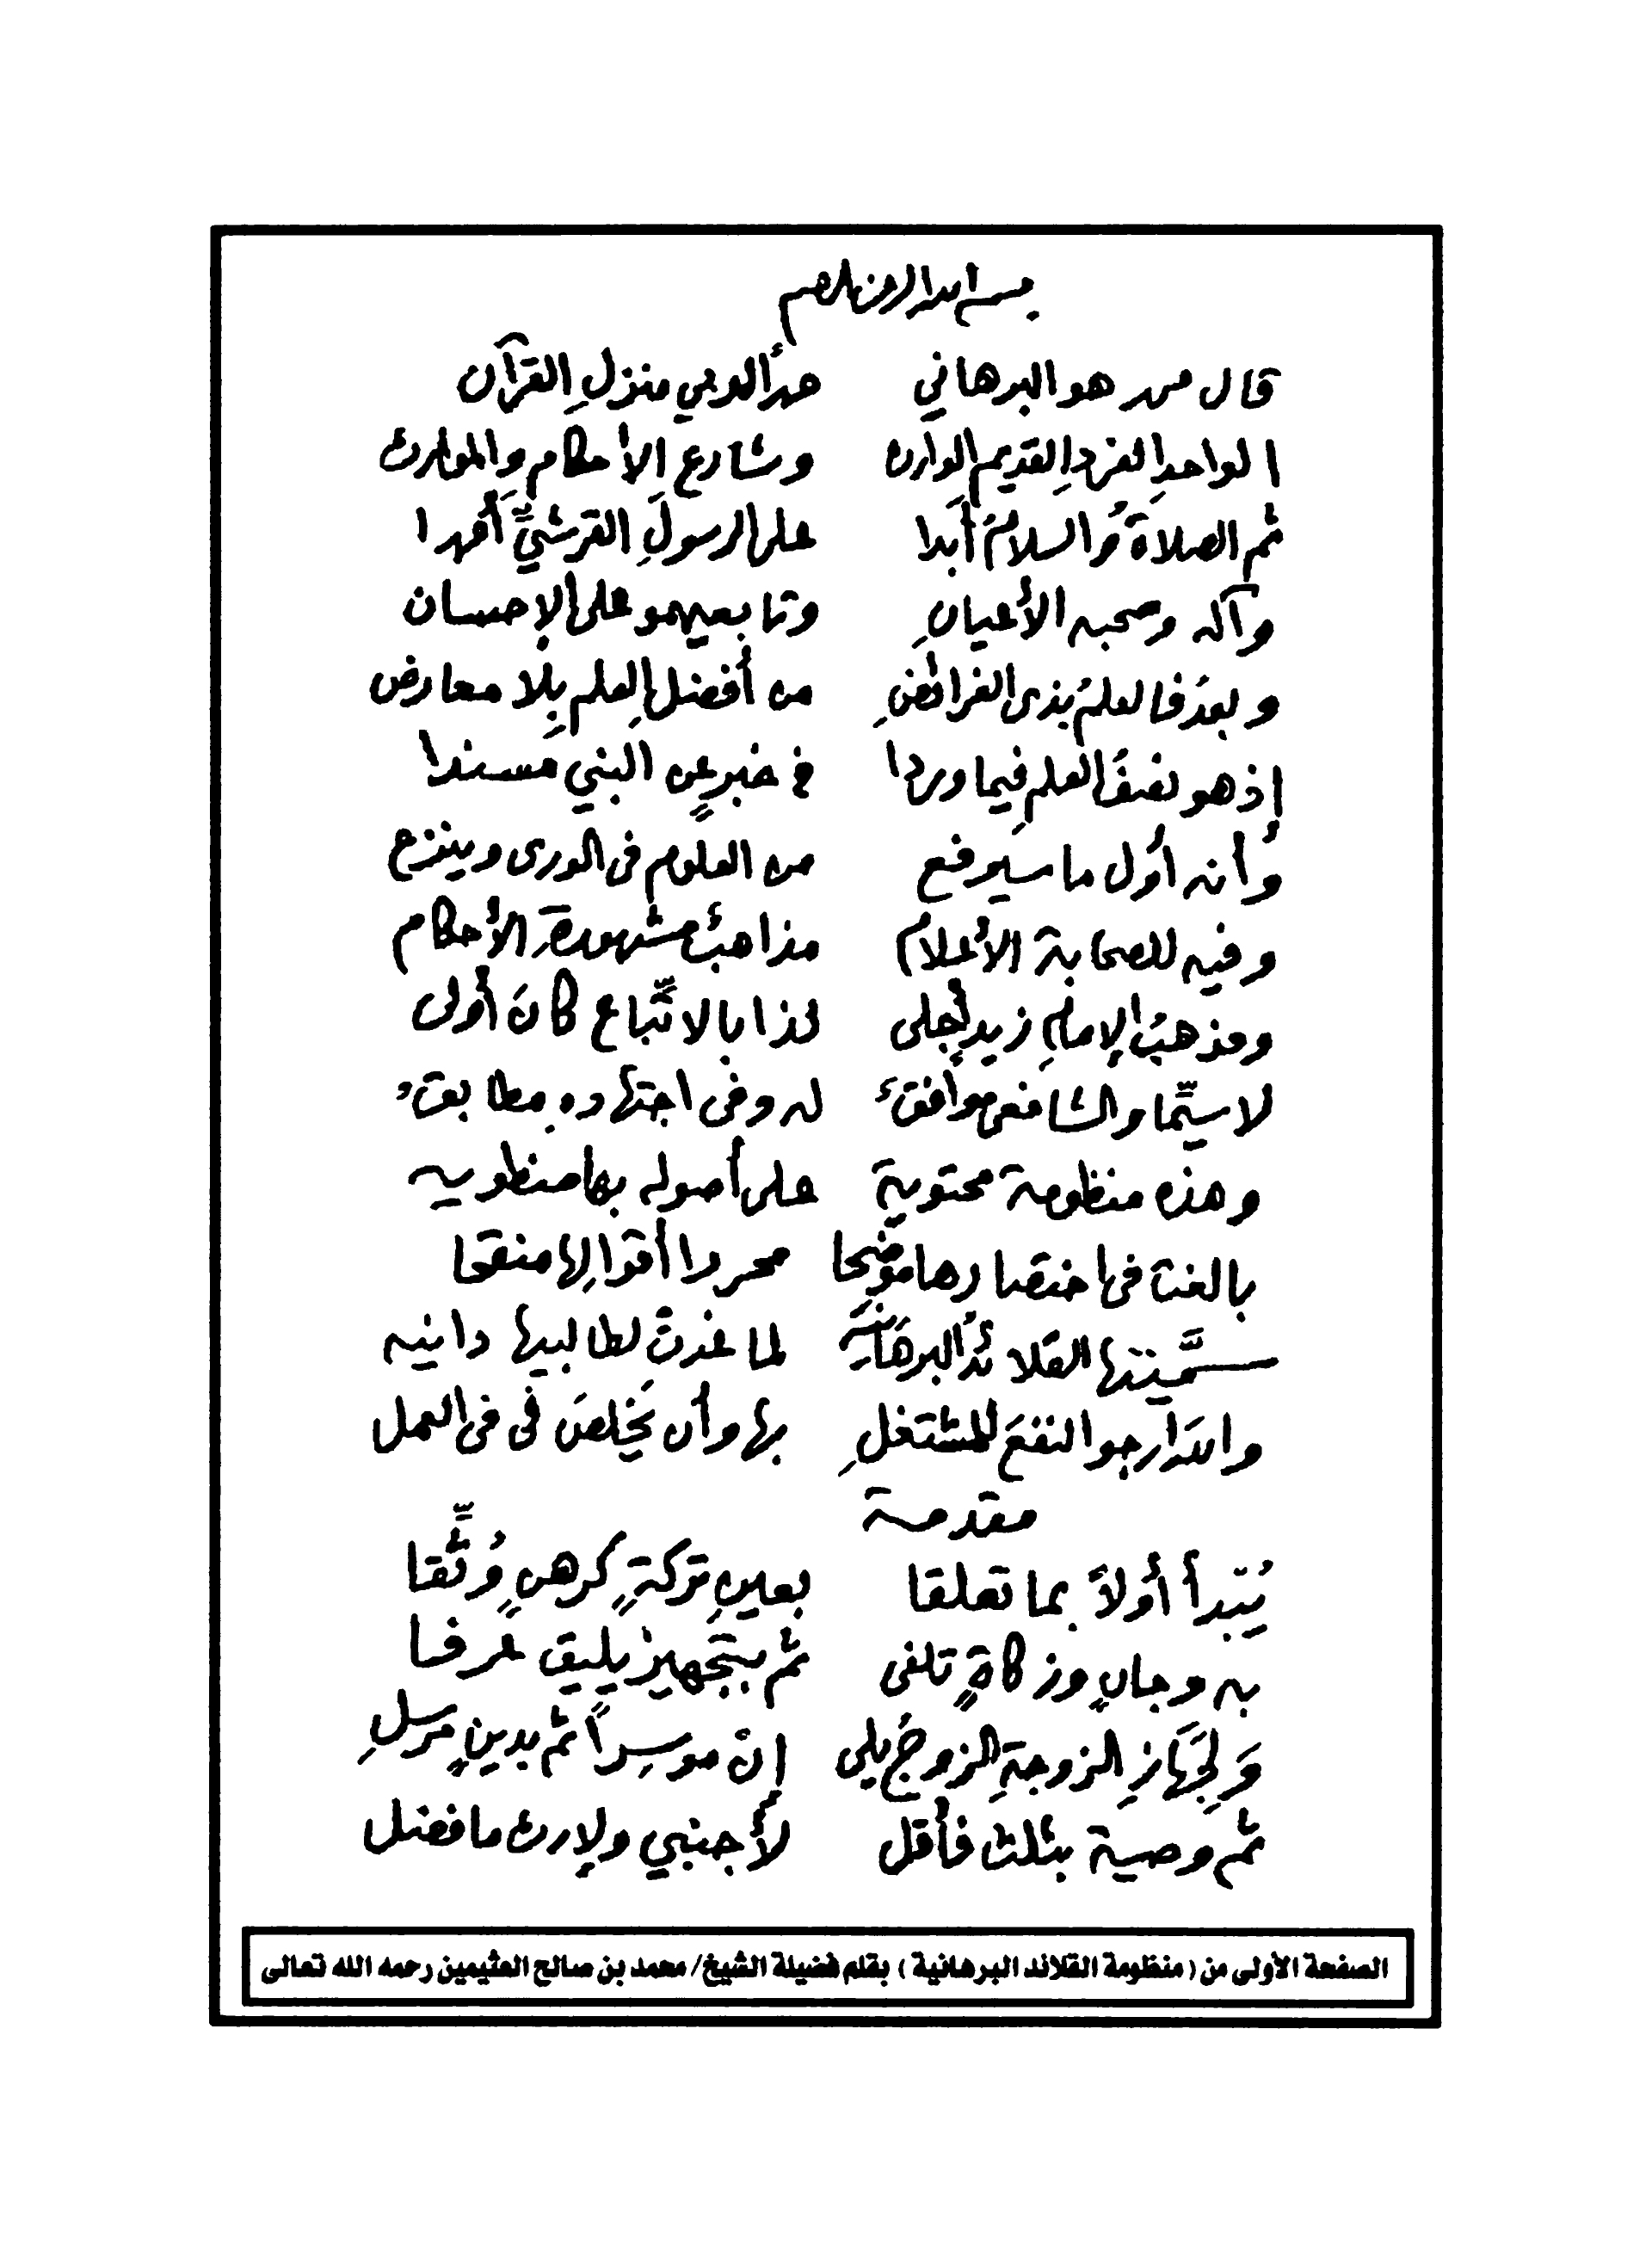 بسم الله الرحمن الرحيم
قال محمد هو البرهاني حمداً لربي منزلِ القرآن
الواحدِ الفردِ القديمِ الوارث وشارع الأحكام والموارث
ثم الصلاةُ والسلامُ أبدا على الرسولِ القرشيِّ أحمدا
وآله وصحبه الأعيانِ وتابعيهمو على الإحسان
وبعدُ فالعلمُ بذي الفرائضِ من أفضل العلم بِلا معارض
إذ هو نصفُ العلم فيما وردا في خبرٍ عن النبي مسندا
وأنه أول ما سيرفع من العلوم في الورى وينزع
وفيه للصحابة الأعلام مذاهبٌ مشهورةُ الأحكام
ومذهبُ الإمامِ زيدٍ أجلى لذا بالاتّباع كانَ أولى
لا سيّما والشافعي موافقُ له وفي اجتهاده مطابقُ
وهذه منظومة محتوية على أصوله بها منطويه
بالغت في اختصارها موضِحا محررا أقوالِها منقحا
سمَّيتها القلائدَ البرهانيه لما غدتْ لطالبيها دانيه
والله أرجو النفعَ للمشتغلِ بها وأن يُخلصَ في في العمل
مقدمة
يُبدأ أولاً بما تعلقا بعينِ تركةٍ كرهنٍ وُثِّقا
به وجانٍ وزكاةٍ تلفى ثم بتجهيز يليق عرفا
وَلِجَهازِ الزوجةِ الزوجُ يلي إنْ موسِراً ثم بدينٍ مرسلِ
ثم وصية بثلث فأقل لأجنبي ولإرث ما فضل
الصفحة الأولى من (منظومة القلائد البرهانية) بقلم فضيلة الشيخ/ محمد بن صالح العثيمين رحمه الله تعالى